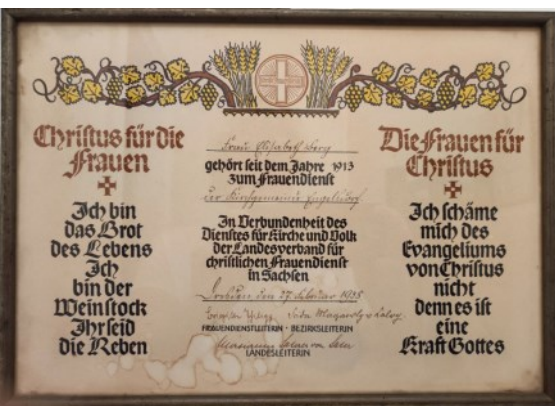 Christus für die
Frauen
Ich bin
das Brot
des Lebens
Ich
bin der
Weinstock
Ihr seid
die Reben
Frau Elisabeth Berg
gehört seit dem Jahre 1913
zum Frauendienst
der Kirchgemeinde Engelsdorf
In Verbundenheit des
Dienstes für Kirche und Volk
der Landesverband für
christlichen Frauendienst
in Sachsen
Dresden den 27. Februar 1935
FRAUENDIENSTLEITERIN · BEZIRKSLEITERIN
LANDESLEITERIN
Die Frauen für
Christus
Ich schäme
mich des
Evangeliums
von Christus
nicht
denn es ist
eine
Kraft Gottes